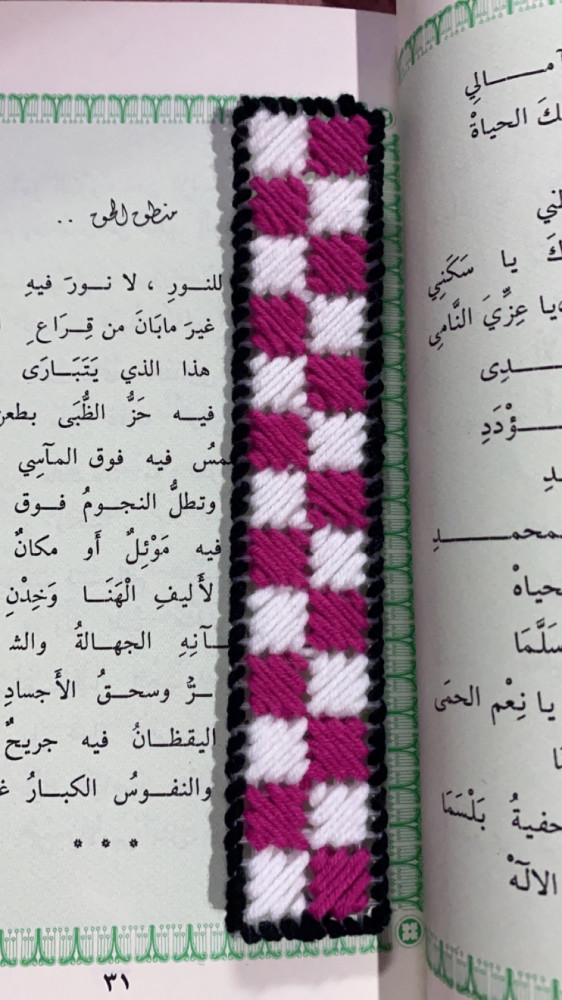 منطق الحق ..
للنــورِ ، لا نــورَ فيهِ
غيرَ مابَانَ من قِــرَاعِ
هذا الذي يَتَبَــارَى
فيــه حَزُّ الظُّبَى بطعن
ـمسُ فيه فوق المآسِي
وتطلُّ النجــومُ فــوق
فيه مَوْئِـلٌ أو مكانٌ
لأَليفِ الْهَنَــا وَخِدْنِ
ـآنِهِ الجهــالةُ والشـ
ـرٌّ وسحــقُ الأجسادِ
اليقظــانُ فيه جريحٌ
والنفــوسُ الكبــارُ
* * *
٣١
ـمــالِي
ـكَ الحياةْ
ـني
ـكَ يا سَكَنِي
ويا عِزِّيَ النَّامِي
ـدِى
ـؤْدَدِ
ـدِ
ـمحمــدِ
ـحياهْ
سَلَّمَا
يا نِعْم الحمَى
ـا
ـحفيةُ بَلْسَمَا
الالَهْ